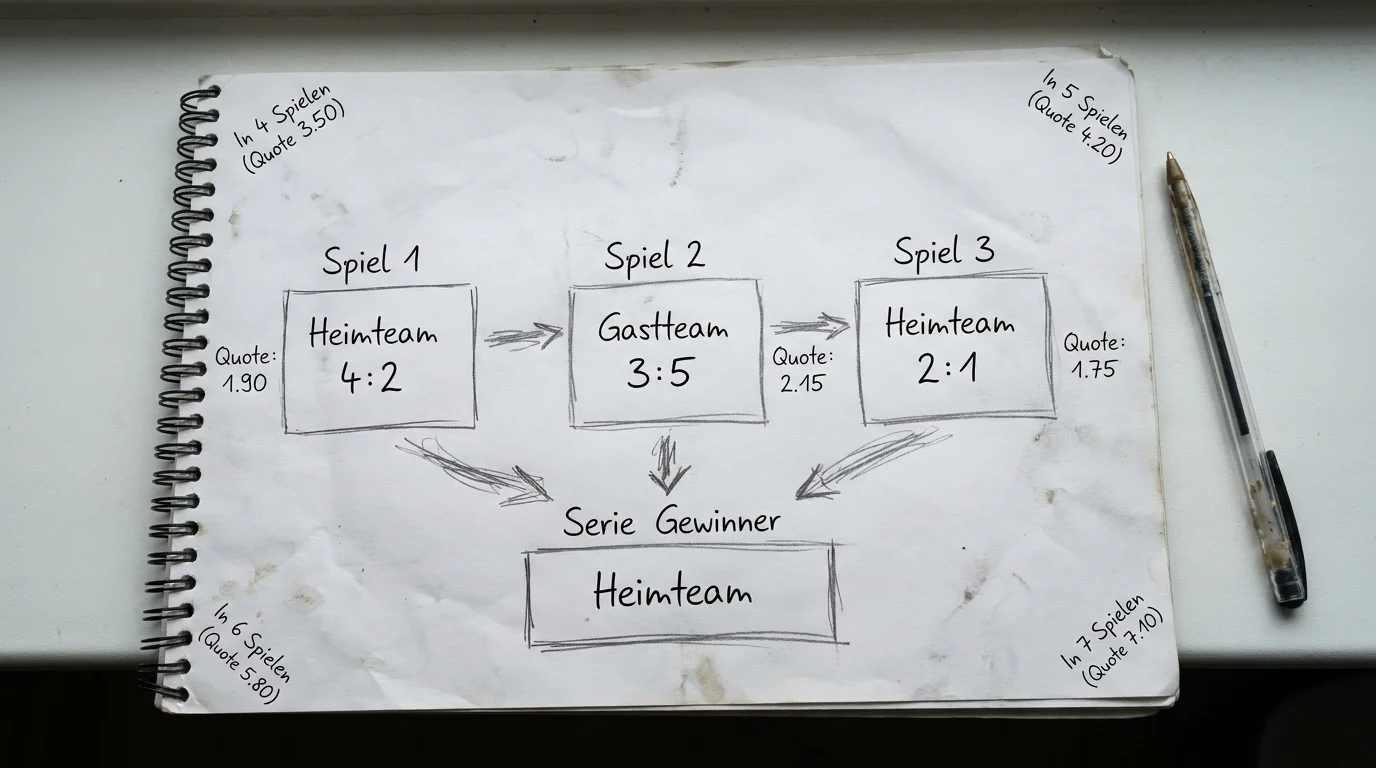 In 4 Spielen
(Quote 3.50)
In 5 Spielen
(Quote 4.20)
Spiel 1
Heimteam
4:2
Quote:
1.90
Spiel 2
Gastteam
3:5
Quote:
2.15
Spiel 3
Heimteam
2:1
Quote:
1.75
Serie Gewinner
Heimteam
In 6 Spielen
(Quote 5.80)
In 7 Spielen
(Quote 7.10)